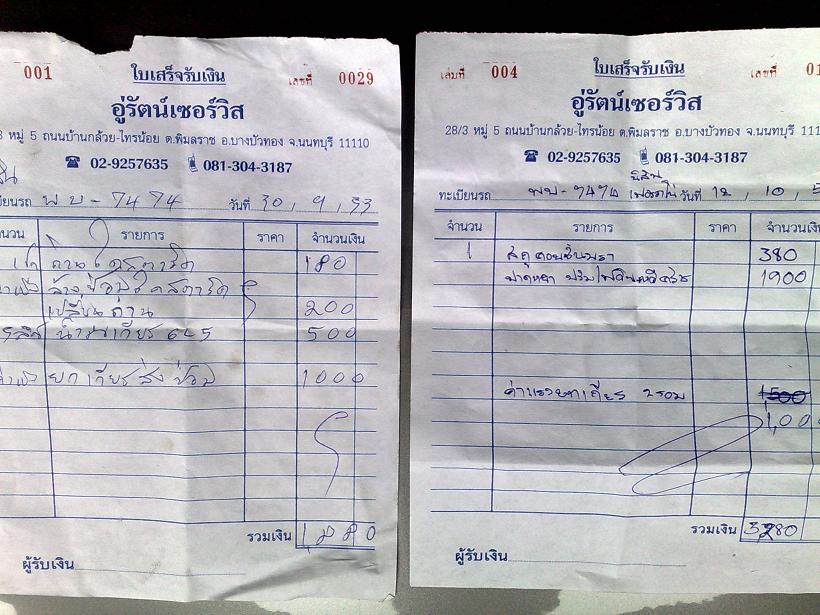 001 ใบเสร็จรับเงิน เลขที่ 0029
อู่รัตน์เซอร์วิส
หมู่ 5 ถนนบ้านกล้วย-ไทรน้อย ต.พิมลราช อ.บางบัวทอง จ.นนทบุรี 11110
☎ 02-9257635 081-304-3187
ทะเบียนรถ พบ-7474 วันที่ 30, 9, 53
จำนวน รายการ ราคา จำนวนเงิน
ถ่านไดสตาร์ท 180
ล้างซ่อมไดสตาร์ท
เปลี่ยนถ่าน 200
น้ำมันเกียร์ 500
ยกเกียร์ส่งซ่อม 1000
รวมเงิน 1880
ผู้รับเงิน
เล่มที่ 004 ใบเสร็จรับเงิน เลขที่
อู่รัตน์เซอร์วิส
28/3 หมู่ 5 ถนนบ้านกล้วย-ไทรน้อย ต.พิมลราช อ.บางบัวทอง จ.นนทบุรี
☎ 02-9257635 081-304-3187
ทะเบียนรถ พบ-7474 วันที่ 12, 10,
จำนวน รายการ ราคา จำนวนเงิน
1 380
1900
ค่าแรงยกเกียร์ 1500
1,00
รวมเงิน 3280
ผู้รับเงิน